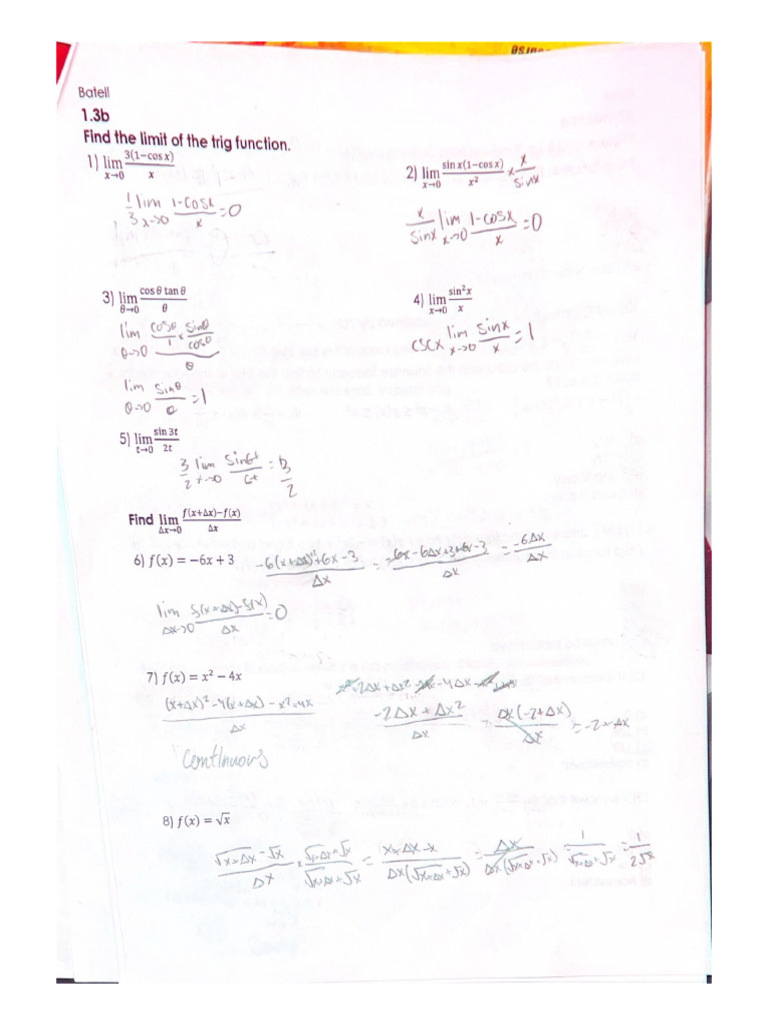 Batell
1.3b
Find the limit of the trig function.
1) lim x→0 3(1−cos x)/x
1/3 lim x→0 1-cosx/x = 0
2) lim x→0 sin x(1−cos x)/x² × x/sinx
x/sinx lim x→0 1-cosx/x = 0
3) lim θ→0 cos θ tan θ/θ
lim θ→0 cosθ/1 × sinθ/cosθ / θ
lim θ→0 sinθ/θ = 1
4) lim x→0 sin²x/x
cscx lim x→0 sinx/x = 1
5) lim t→0 sin 3t/2t
3/2 lim t→0 sin6t/6t = 3/2
Find lim Δx→0 f(x+Δx)−f(x)/Δx
6) f(x) = −6x + 3
-6(x+Δx)+6x-3/Δx = -6x-6Δx+3+6x-3/Δx = -6Δx/Δx
lim Δx→0 f(x+Δx)-f(x)/Δx = 0
7) f(x) = x² − 4x
(x+Δx)²-4(x+Δx)-x²+4x/Δx
-2Δx+Δx²/Δx = Δx(-2+Δx)/Δx = -2+Δx
Continuous
8) f(x) = √x
√x+Δx-√x/Δx × √x+Δx+√x/√x+Δx+√x = x+Δx-x/Δx(√x+Δx+√x) = Δx/Δx(√x+Δx+√x) = 1/√x+Δx+√x = 1/2√x